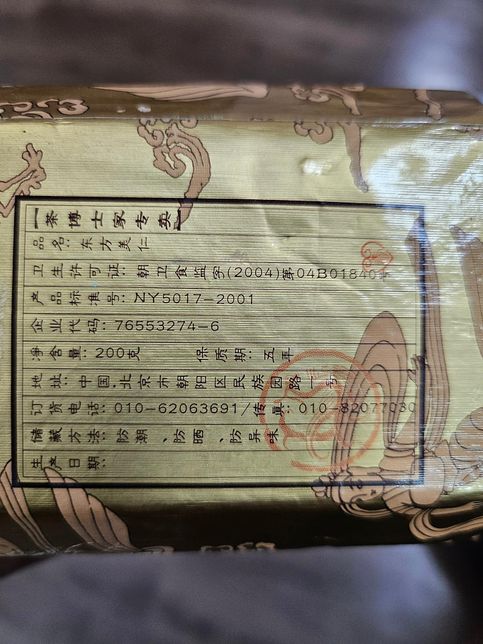 茶博士家专卖
品名：东方美仁
卫生许可证：朝卫食监字(2004)第04B01840号
产品标准号：NY5017-2001
企业代码：76553274-6
净含量：200克 保质期：五年
地址：中国.北京市朝阳区民族园路一号
订货电话：010-62063691/传真：010-82077030
储藏方法：防潮、防晒、防异味
生产日期：